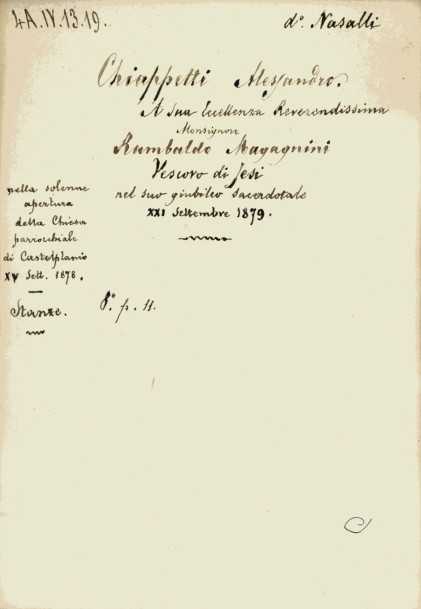 4A.IV.13.19.
d°. Nasalli
Chiappetti Alessandro.
A Sua Eccellenza Reverendissima
Monsignore
Rambaldo Magagnini
Vescovo di Jesi
nel suo giubileo sacerdotale
XXI Settembre 1879.
nella solenne
apertura
della Chiesa
parrocchiale
di Castelplanio
XV Sett. 1878.
Stanze.
8.° p. 11.